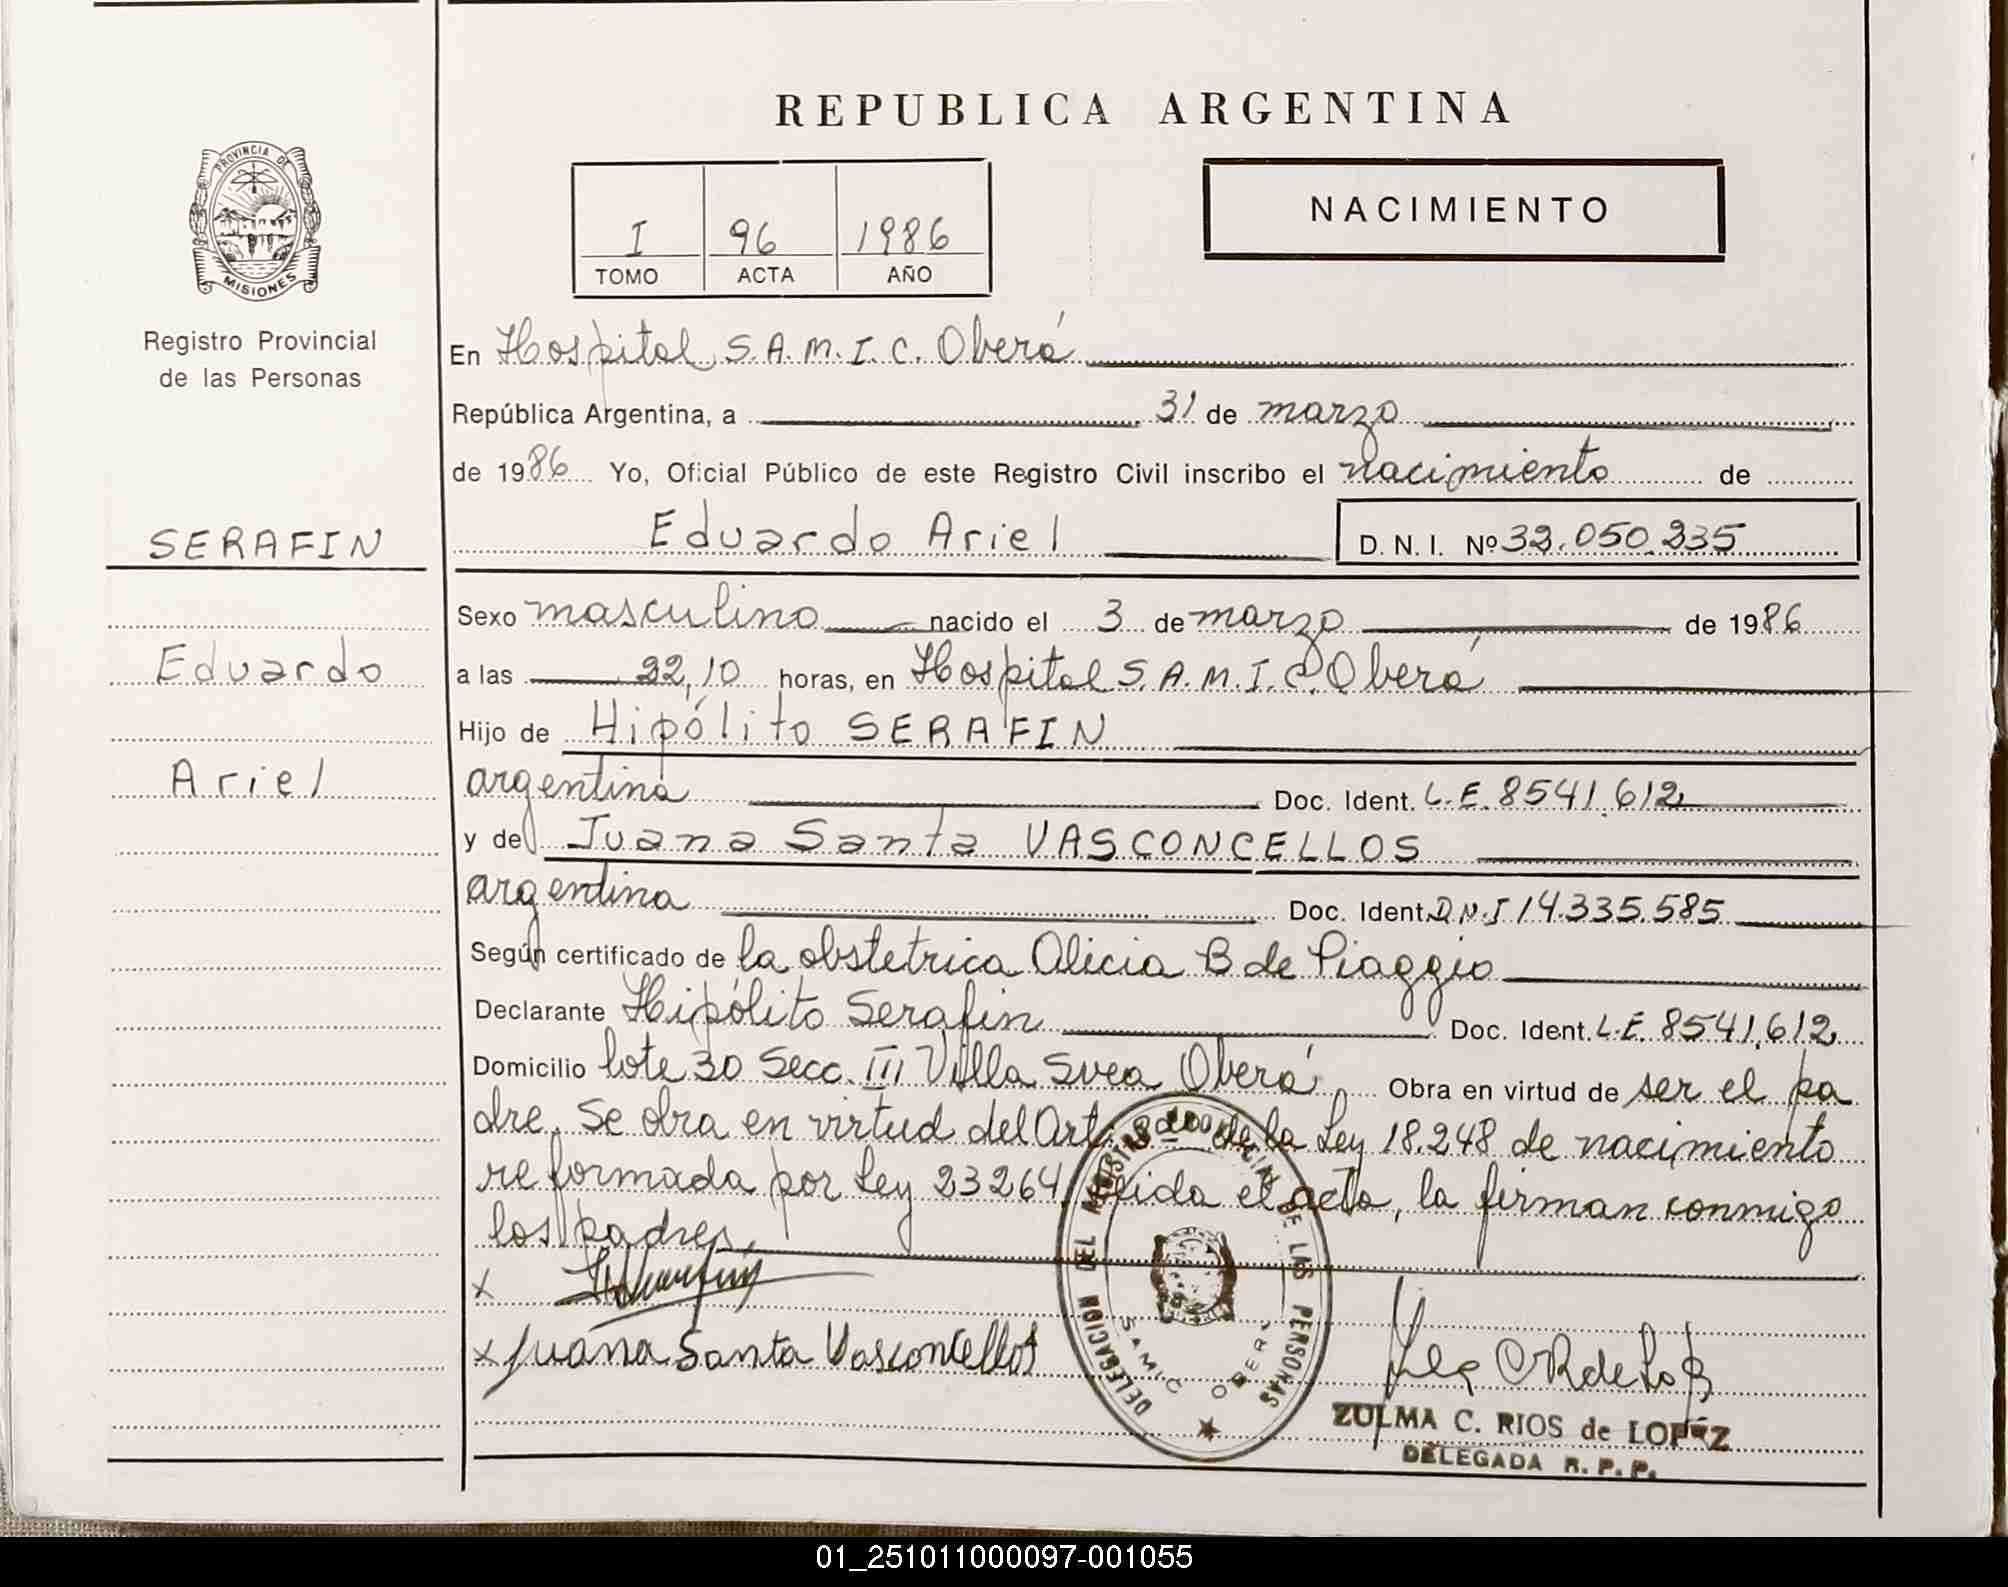 REPUBLICA ARGENTINA
PROVINCIA DE
MISIONES
Registro Provincial
de las Personas
I 96 1986
TOMO ACTA AÑO
NACIMIENTO
En Hospital S.A.M.I.C. Oberá
República Argentina, a 31 de marzo
de 1986 Yo, Oficial Público de este Registro Civil inscribo el nacimiento de
SERAFIN
Eduardo Ariel D. N. I. Nº 32.050.235
Sexo masculino nacido el 3 de marzo de 1986
Eduardo
a las 22,10 horas, en Hospital S.A.M.I.C. Oberá
Hijo de Hipólito SERAFIN
Ariel
argentina Doc. Ident. L.E. 8541.612
y de Juana Santa VASCONCELLOS
argentina Doc. Ident. D.N.I 14.335.585
Según certificado de la obstetrica Alicia B de Piaggio
Declarante Hipólito Serafin Doc. Ident. L.E. 8541.612
Domicilio lote 30 Secc. III Villa Svea Oberá Obra en virtud de ser el pa
dre. Se obra en virtud del Art. de la Ley 18.248 de nacimiento
reformada por Ley 23264, leida el acta, la firman conmigo
los padres,
x
x Juana Santa Vasconcellos
DELEGACION DEL REGISTRO PROVINCIAL DE LAS PERSONAS
SAMIC OBERA
ZULMA C. RIOS de LOPEZ
DELEGADA R. P. P.
01_251011000097-001055